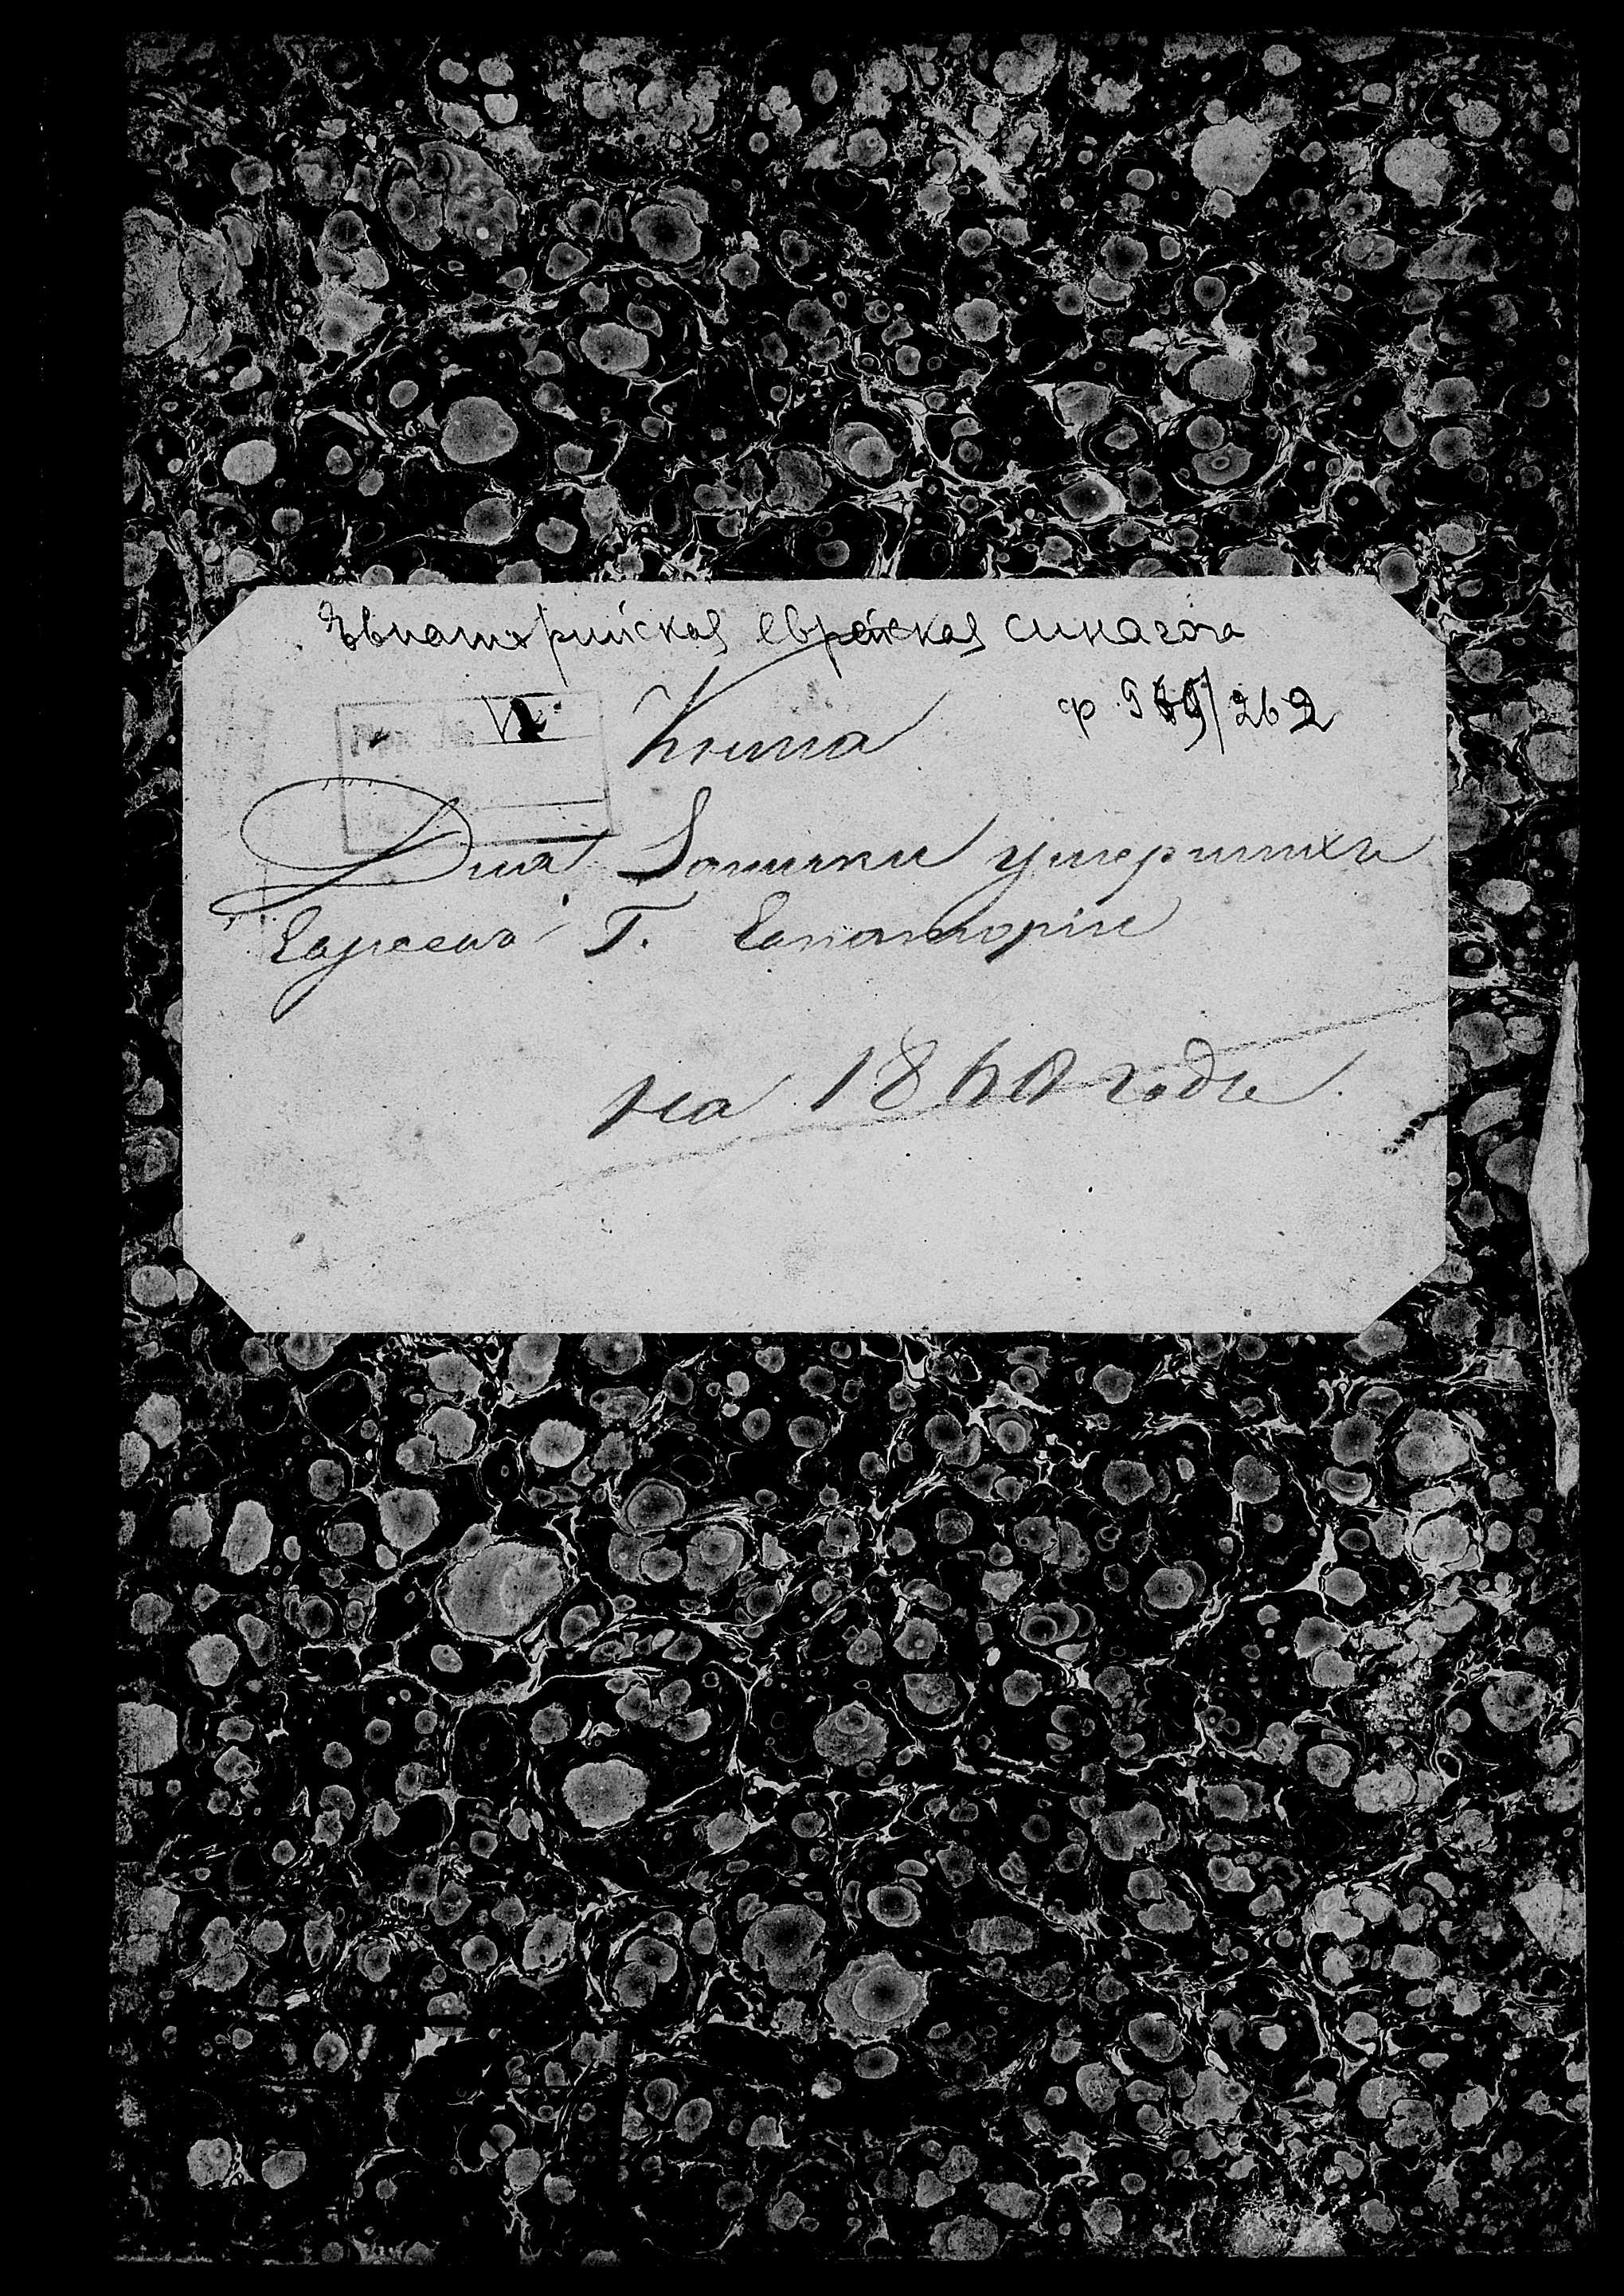 Евпаторийская еврейская синагога
Книга
Для Записки умершихъ
Евреевъ Г. Евпаторіи
на 18 годъ